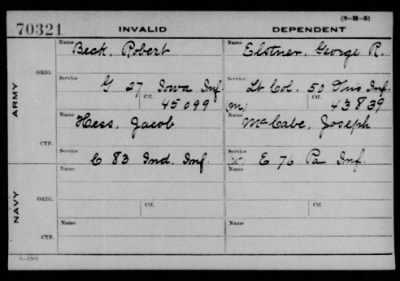 (3-H-3)
70321 INVALID DEPENDENT
Name Beck, Robert Name Elstner, George R.
ARMY
ORIG.
Service G 27 Iowa Inf. Service Lt Col. 50 Ills Inf.
Ctf. 45099 (m) Ctf. 43839
Name Hess, Jacob Name McCabe, Joseph
CTF.
Service C 83 Ind. Inf. Service (W. E 76 Pa Inf.
NAVY
ORIG.
Name Name
Ctf. Ctf.
CTF.
Name Name